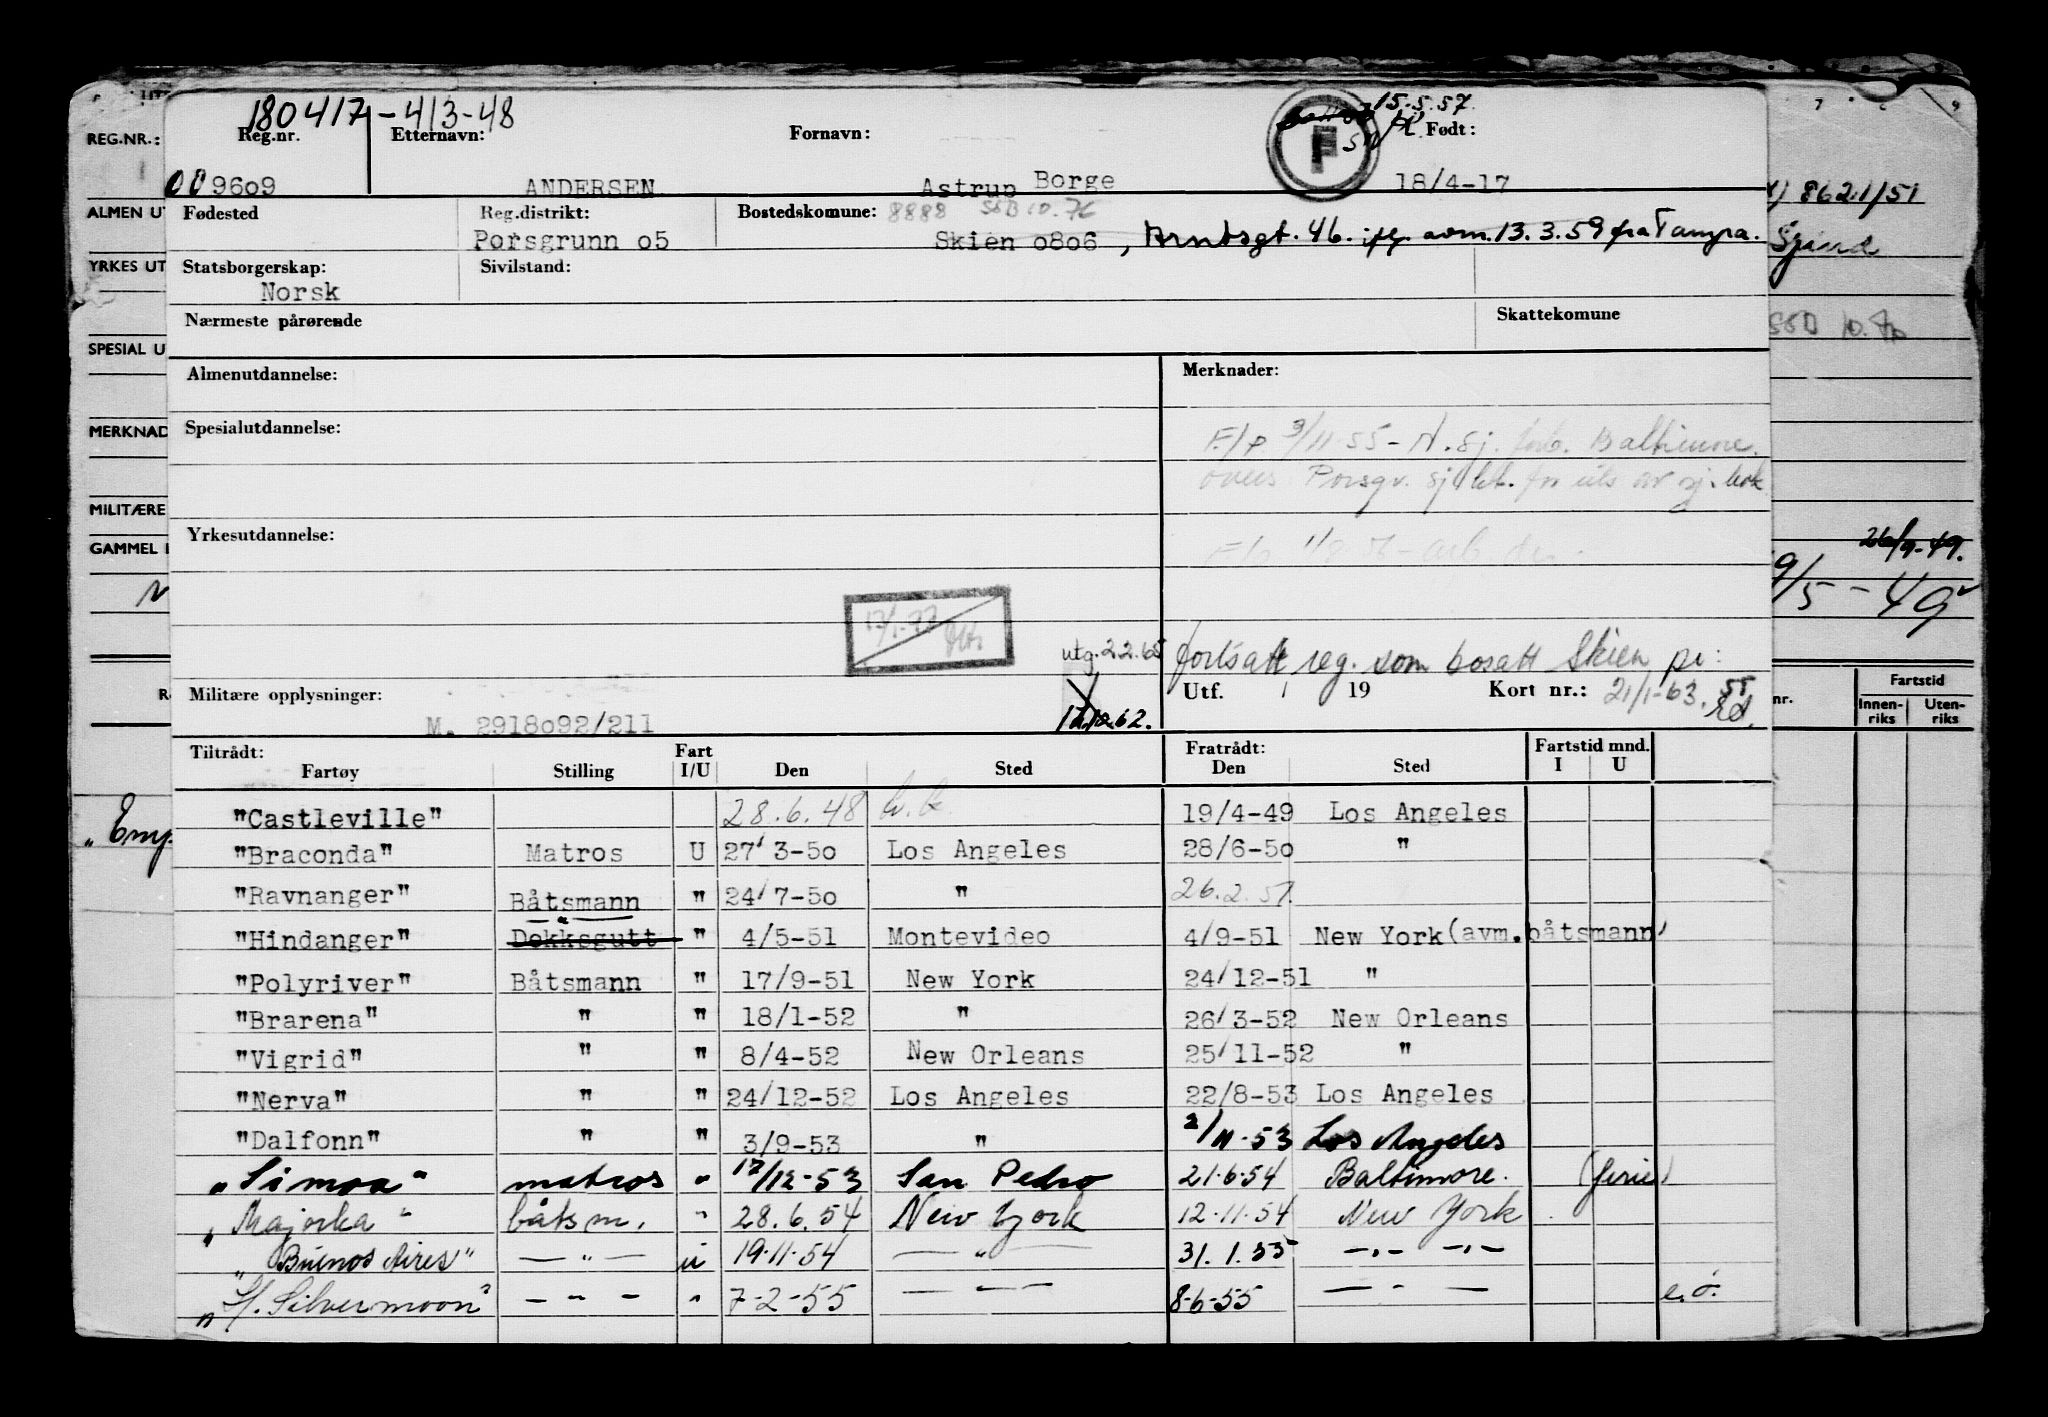 180417-413-48
15.5.57
REG.NR.: Reg.nr. Etternavn: Fornavn: F Født:
009609 ANDERSEN Astrup Borge 18/4-17
8621/51
ALMEN UT Fødested Reg.distrikt: Bostedskomune: 8888 SSB 10.76
Porsgrunn o5 Skien o8o6, Brntsgt. 46. ifg. avm. 13.3.59 fra Tampa.
YRKES UT Statsborgerskap: Sivilstand:
Norsk
Nærmeste pårørende Skattekomune
SSB 10.
SPESIAL U
Almenutdannelse: Merknader:
MERKNAD Spesialutdannelse:
F/p 3/11 55 - N. Sj. forb. Baltimore.
Porsgr. sj
MILITÆRE
Yrkesutdannelse:
GAMMEL
26/9-49.
9/5-49
17/1-77
utg. 2.2.65 fortsatt reg. som bosatt Skien pr:
Militære opplysninger: Utf. / 19 Kort nr.: 21/1-63.
M. 2918o92/211
12.10.62.
nr. Fartstid
Innenriks Utenriks
Tiltrådt: Fart Fratrådt: Fartstid mnd.
Fartøy Stilling I/U Den Sted Den Sted I U
"Castleville" 28.6.48 19/4-49 Los Angeles
„Emp
"Braconda" Matros U 27/3-5o Los Angeles 28/6-5o "
"Ravnanger" Båtsmann " 24/7-5o " 26.2.51
"Hindanger" Dekksgutt " 4/5-51 Montevideo 4/9-51 New York (avm. båtsmann)
"Polyriver" Båtsmann " 17/9-51 New York 24/12-51 "
"Brarena" " " 18/1-52 " 26/3-52 New Orleans
"Vigrid" " " 8/4-52 New Orleans 25/11-52 "
"Nerva" " " 24/12-52 Los Angeles 22/8-53 Los Angeles
"Dalfonn" " " 3/9-53 " 2/11-53 Los Angeles
„Simoa" matros " 12/12-53 San Pedro 21.6.54 Baltimore. (ferie)
„Majorka" båtsm. " 28.6.54 New York 12.11.54 New York
„Buenos Aires" — " — U 19.11.54 — " — 31.1.55 — " — — " —
„H. Silvermoon" — " — " 7-2-55 — " — 8-6-55 — " — e.ø.